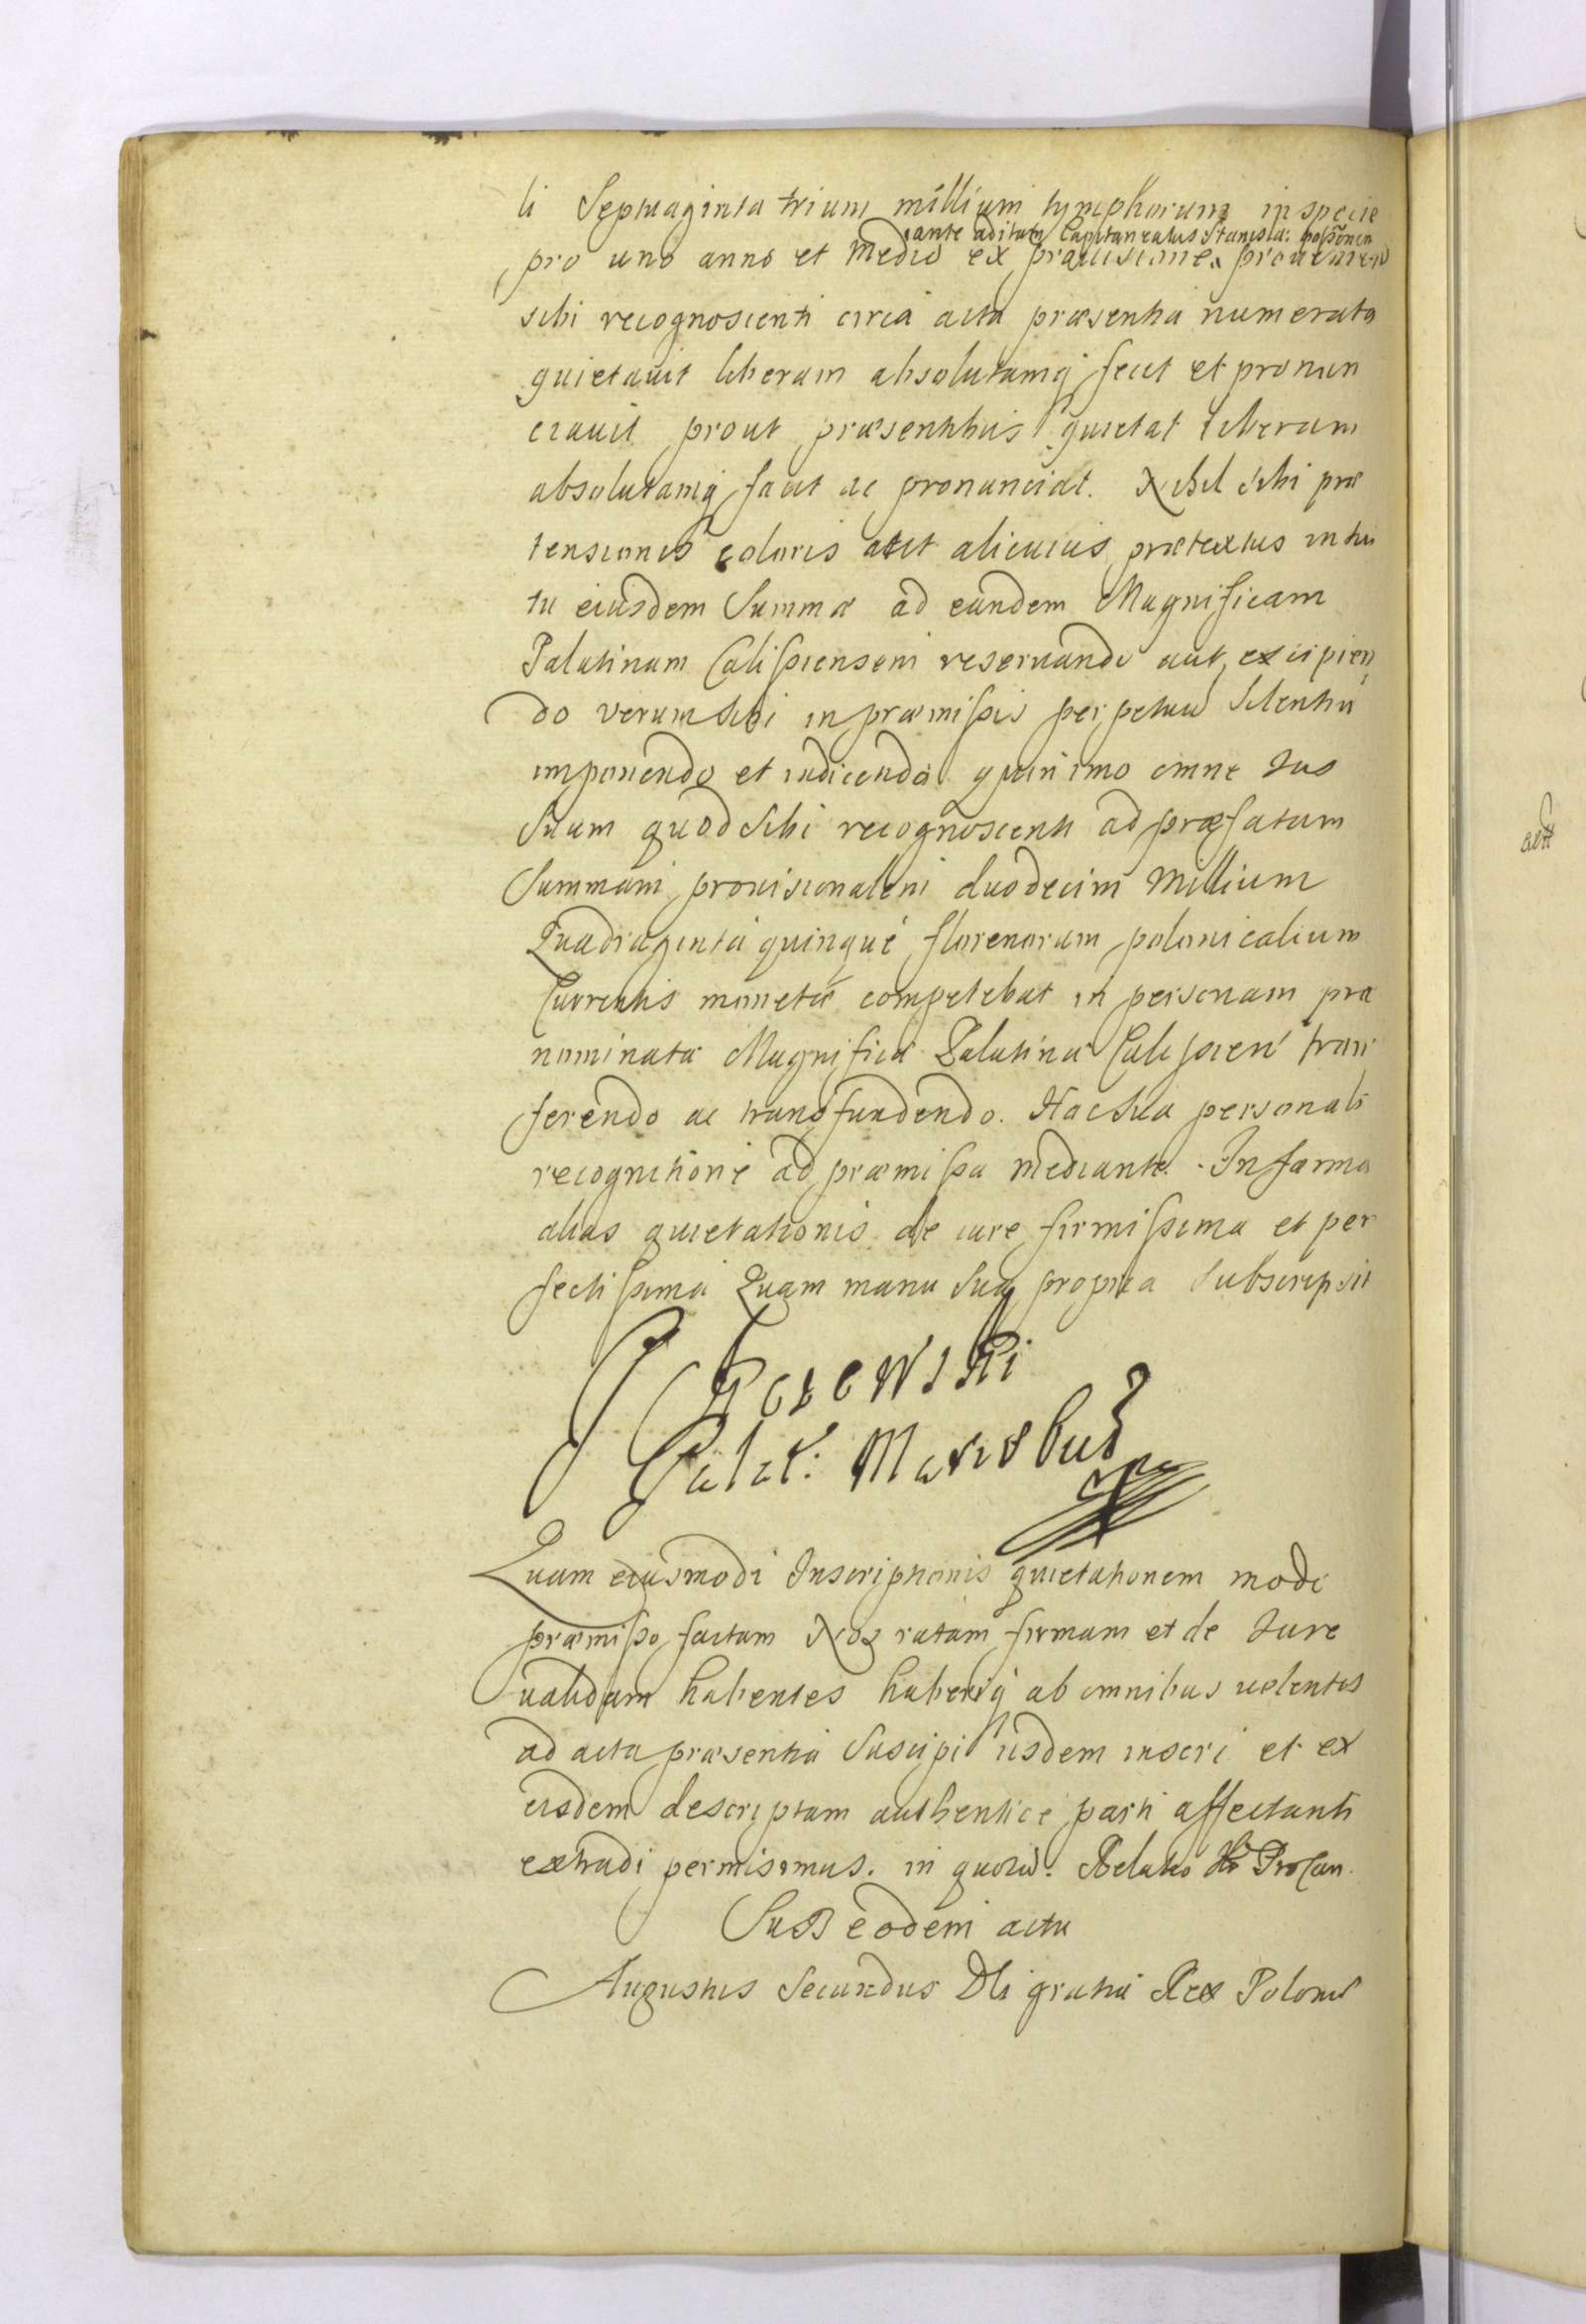 li Septuaginta trium millium tymphorum in specie
ante aditum Capitaneatus Stanisla:
pro uno anno et medio ex provisione provenien
sibi recognoscenti circa acta præsentia numerata
quietavit liberam absolutamq fecit et pronun
ciavit prout præsentibus quietat liberam
absolutamq facit ac pronunciat. Nihil sibi præ
tensionis coloris aut alicuius prætextus intui
tu eiusdem Summæ ad eandem Magnificam
Palatinam Calissiensem reservando aut excipien
do verum sibi in præmissis perpetuu silentiu
imponendo et indicendo quin imo omne Jus
Suum quod Sibi recognoscenti ad præfatam
Summam provisionalem duodecim Millium
Quadraginta quinque florenorum polonicalium
Currentis monetæ competebat in personam præ
nominatæ Magnificæ Palatinæ Calissien trans
ferendo ac transfundendo. Hac sua personali
recognitione ad præmissa mediante. In forma
alias quietationis de iure firmissima et per
fectissima Quam manu sua propria subscripsit
Palat: Mariæbur
Quam eiusmodi Inscriptionis quietationem modo
præmisso factam Nos ratam firmam et de Jure
validam habentes haberiq ab omnibus volentes
ad acta præsentia Suscipi iisdem inseri et ex
eisdem descriptam authentice parti affectanti
extradi permisimus. in quorũ. Relatio Procan.
Sub eodem actu
Augustus Secundus Dei gratia Rex Poloniæ